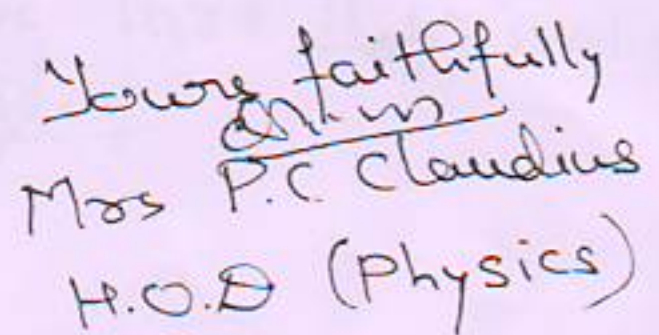 Yours faithfully
Mrs P.C. Claudius
H.O.D (Physics)